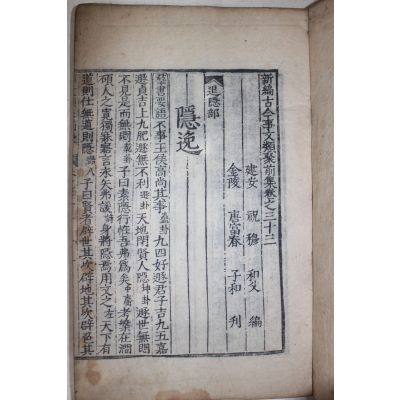 新編古今事文類聚前集卷之三十三
建安 祝穆 和父 編
金陵 唐富春 子和 刊
退隱部
隱逸
羣書要語不事王侯高尚其事蠱卦九四好遯君子吉九五嘉
遯貞吉上九肥遯無不利遯卦天地閉賢人隱坤卦遯世無悶
不見是而無悶乾卦子曰素隱行怪吾弗爲矣中庸考槃在澗
碩人之寬獨寐寤言永矢弗諼詩身將隱焉用文之左天下有
道則仕無道則隱子曰賢者辟世其次辟地其次辟色其